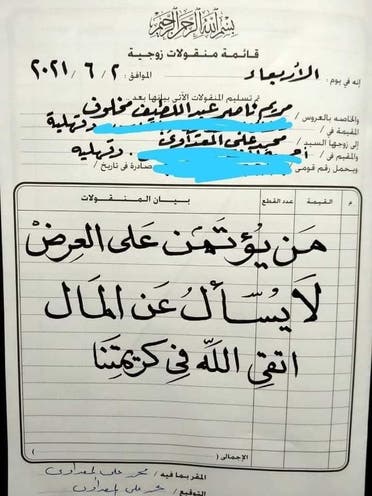 بسم الله الرحمن الرحيم
قائمة منقولات زوجية
إنه في يوم : الأربعاء الموافق : ٢ / ٦ / ٢٠٢١
تم تسليم المنقولات الأتى بيانها بعد
والخاصه بالعروس / مريم ناصر عبداللطيف مخلوف
المقيمة فى / دقهلية
إلى زوجها السيد / محمد على المعداوى
والمقيم فى / دقهليه
ويحمل رقم قومى صادرة فى تاريخ /
م القيمة عدد القطع بيان المنقولات
مَن يُؤتَمَن عَلى العِرضْ
لَا يُسْأَلُ عَن المَال
اتقِى اللَّه فِى كَرِيمتِنَا
الإجمالى ( )
المقر بما فيه / محمد على المعداوى
التوقيع / محمد على المعداوى